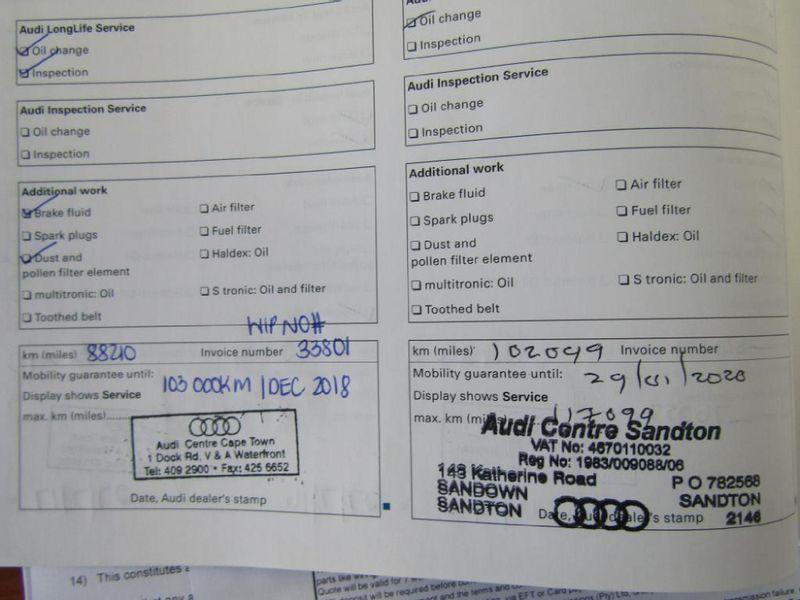 Audi LongLife Service
Oil change
Inspection
Audi Inspection Service
Oil change
Inspection
Additional work
Brake fluid
Air filter
Spark plugs
Fuel filter
Dust and
pollen filter element
Haldex: Oil
multitronic: Oil
S tronic: Oil and filter
Toothed belt
WIP NO#
km (miles) 88210 Invoice number 33801
Mobility guarantee until:
103 000KM | DEC 2018
Display shows Service
max. km (miles)
Audi Centre Cape Town
1 Dock Rd. V & A Waterfront
Tel: 409 2900 • Fax: 425 6652
Date, Audi dealer's stamp
Oil change
Inspection
Audi Inspection Service
Oil change
Inspection
Additional work
Brake fluid
Air filter
Spark plugs
Fuel filter
Dust and
pollen filter element
Haldex: Oil
multitronic: Oil
S tronic: Oil and filter
Toothed belt
km (miles) 102099 Invoice number
Mobility guarantee until: 29/01/2020
Display shows Service
max. km (miles) 117099
Audi Centre Sandton
VAT No: 4670110032
Reg No: 1983/009088/06
Katherine Road
P O 782568
SANDOWN
SANDTON
SANDTON
2146
Date, Audi dealer's stamp
14) This constitutes
Quote will be valid for